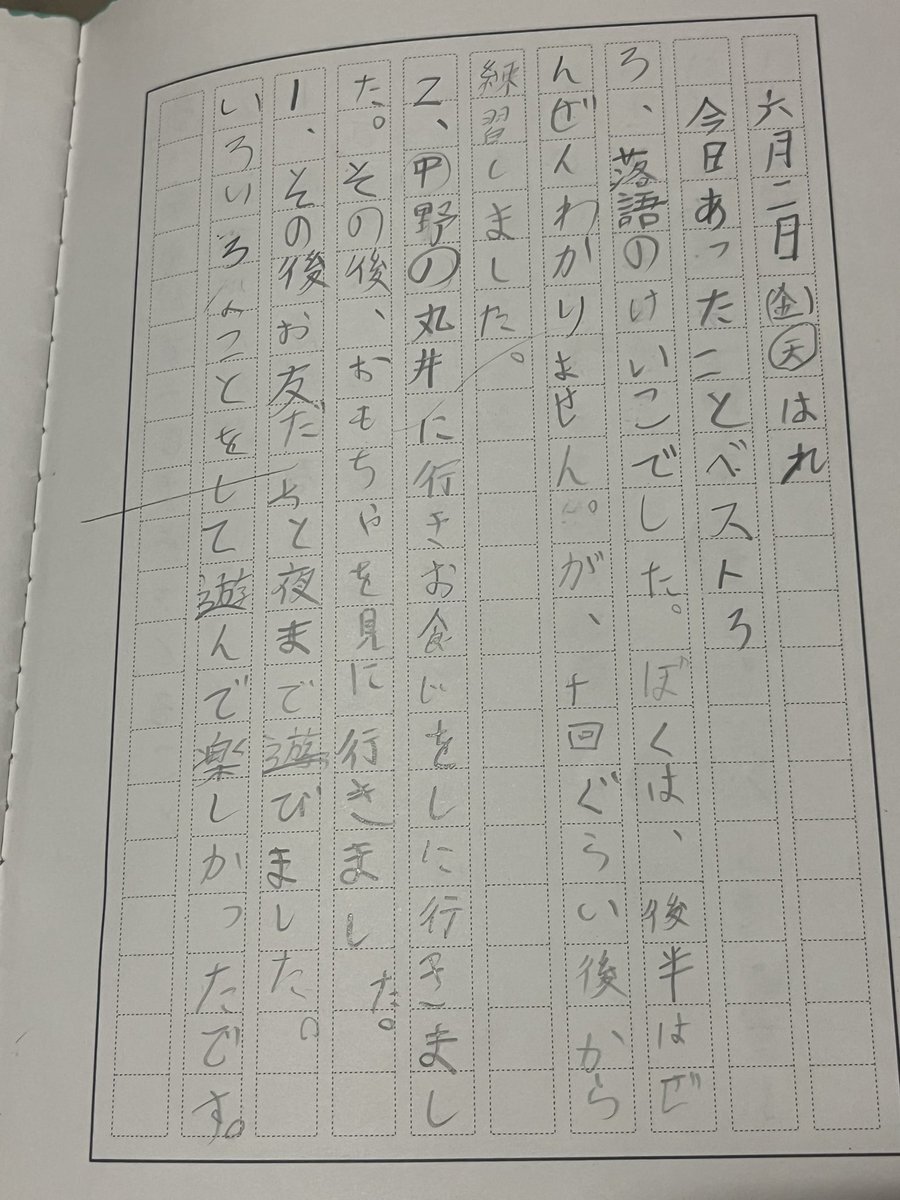 六月二日(金)天はれ
今日あったことベスト3
3、落語のけいこでした。ぼくは、後半はぜ
んぜんわかりません。が、十回ぐらい後から
練習しました。
2、中野の丸井に行きお食じをしに行きまし
た。その後、おもちゃを見に行きました。
1、その後お友だちと夜まで遊びました。
いろいろなことをして遊んで楽しかったです。